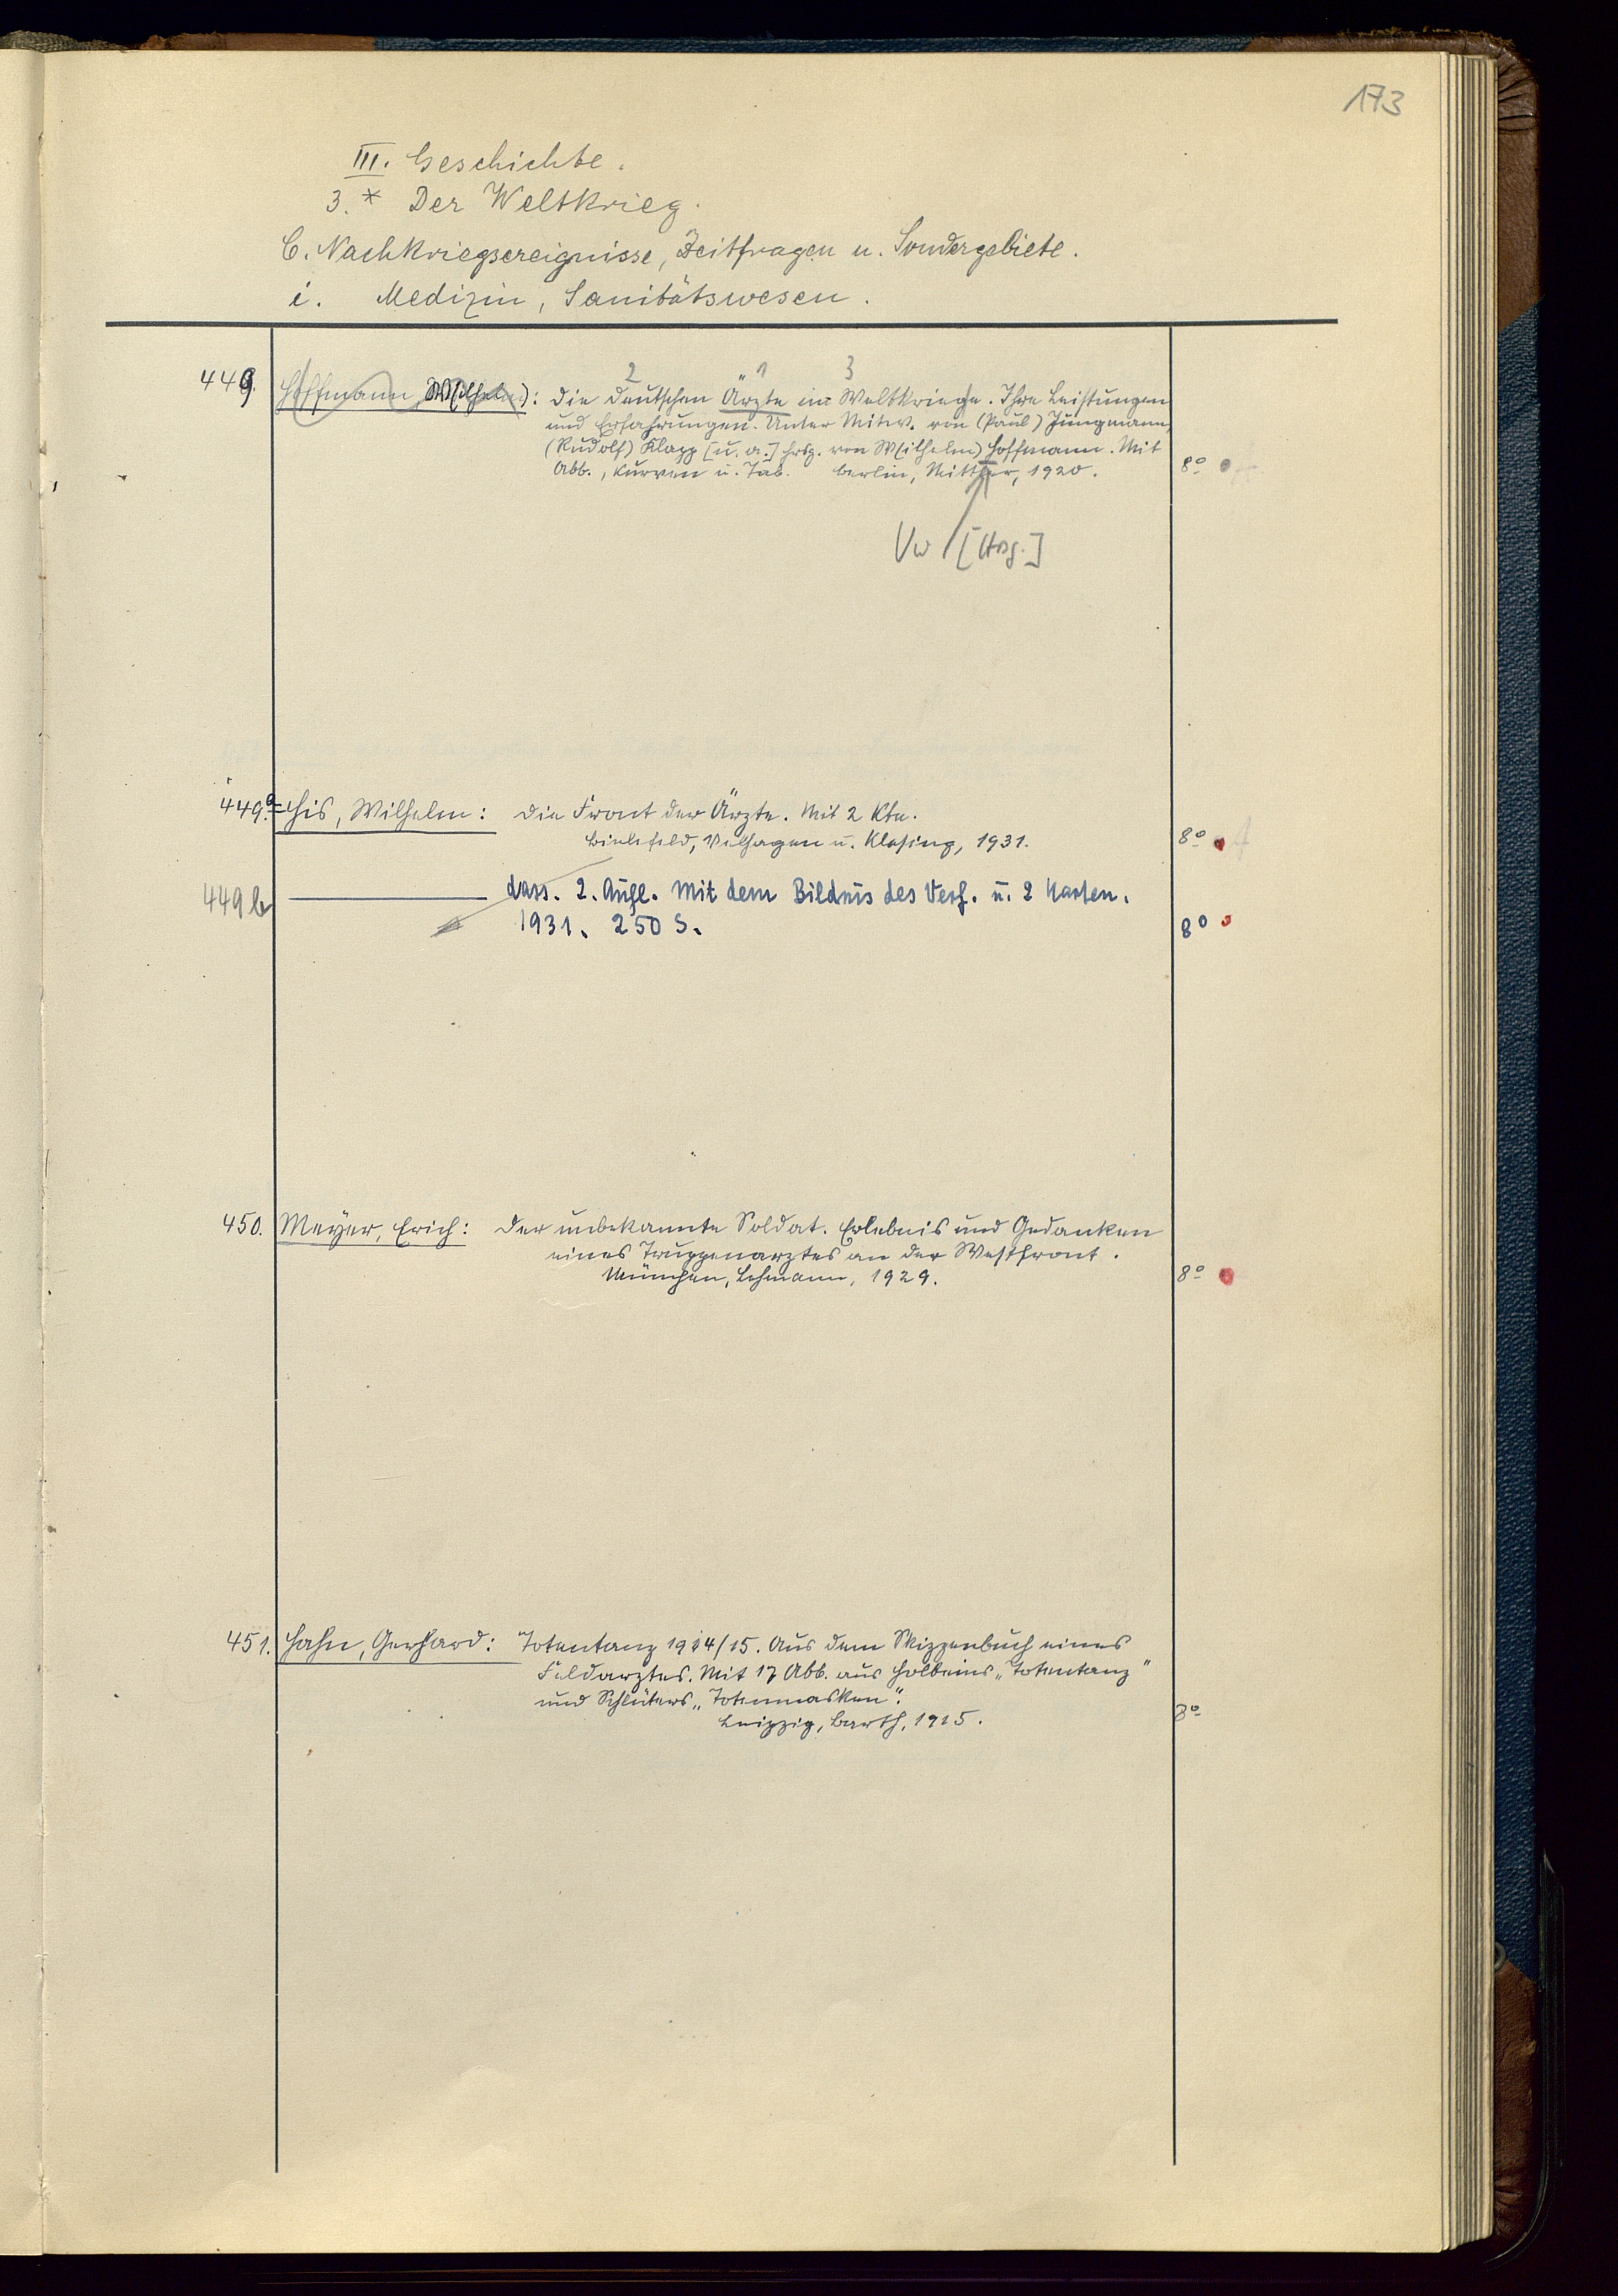 173
III. Geschichte.
3.* Der Weltkrieg.
C. Nachkriegsereignisse, Zeitfragen u. Sondergebiete.
i. Medizin, Sanitätswesen.
2 1 3
449. Hoffmann W(ilhelm): Die deutschen Ärzte im Weltkriege. Ihre Leistungen
und Erfahrungen. Unter Mitw. von (Paul) Jungmann,
(Rudolf) Klapp [u. a.] hrsg. von W(ilhelm) Hoffmann. Mit
Abb., Kurven u. Tab. Berlin, Mittler, 1920. 8°
Vw [Hrsg.]
449.a His, Wilhelm: Die Front der Ärzte. Mit 2 Ktn.
Bielefeld, Velhagen u. Klasing, 1931. 8°
449b dass. 2. Aufl. Mit dem Bildnis des Verf. u. 2 Karten.
1931. 250 S. 8°
450. Meyer, Erich: Der unbekannte Soldat. Erlebnis und Gedanken
eines Truppenarztes an der Westfront.
München, Lehmann, 1929. 8°
451. Hahn, Gerhard: Totentanz 1914/15. Aus dem Skizzenbuch eines
Feldarztes. Mit 17 Abb. aus Holbeins „Totentanz"
und Schlüters „Totenmasken".
Leipzig, Barth, 1915. 8°